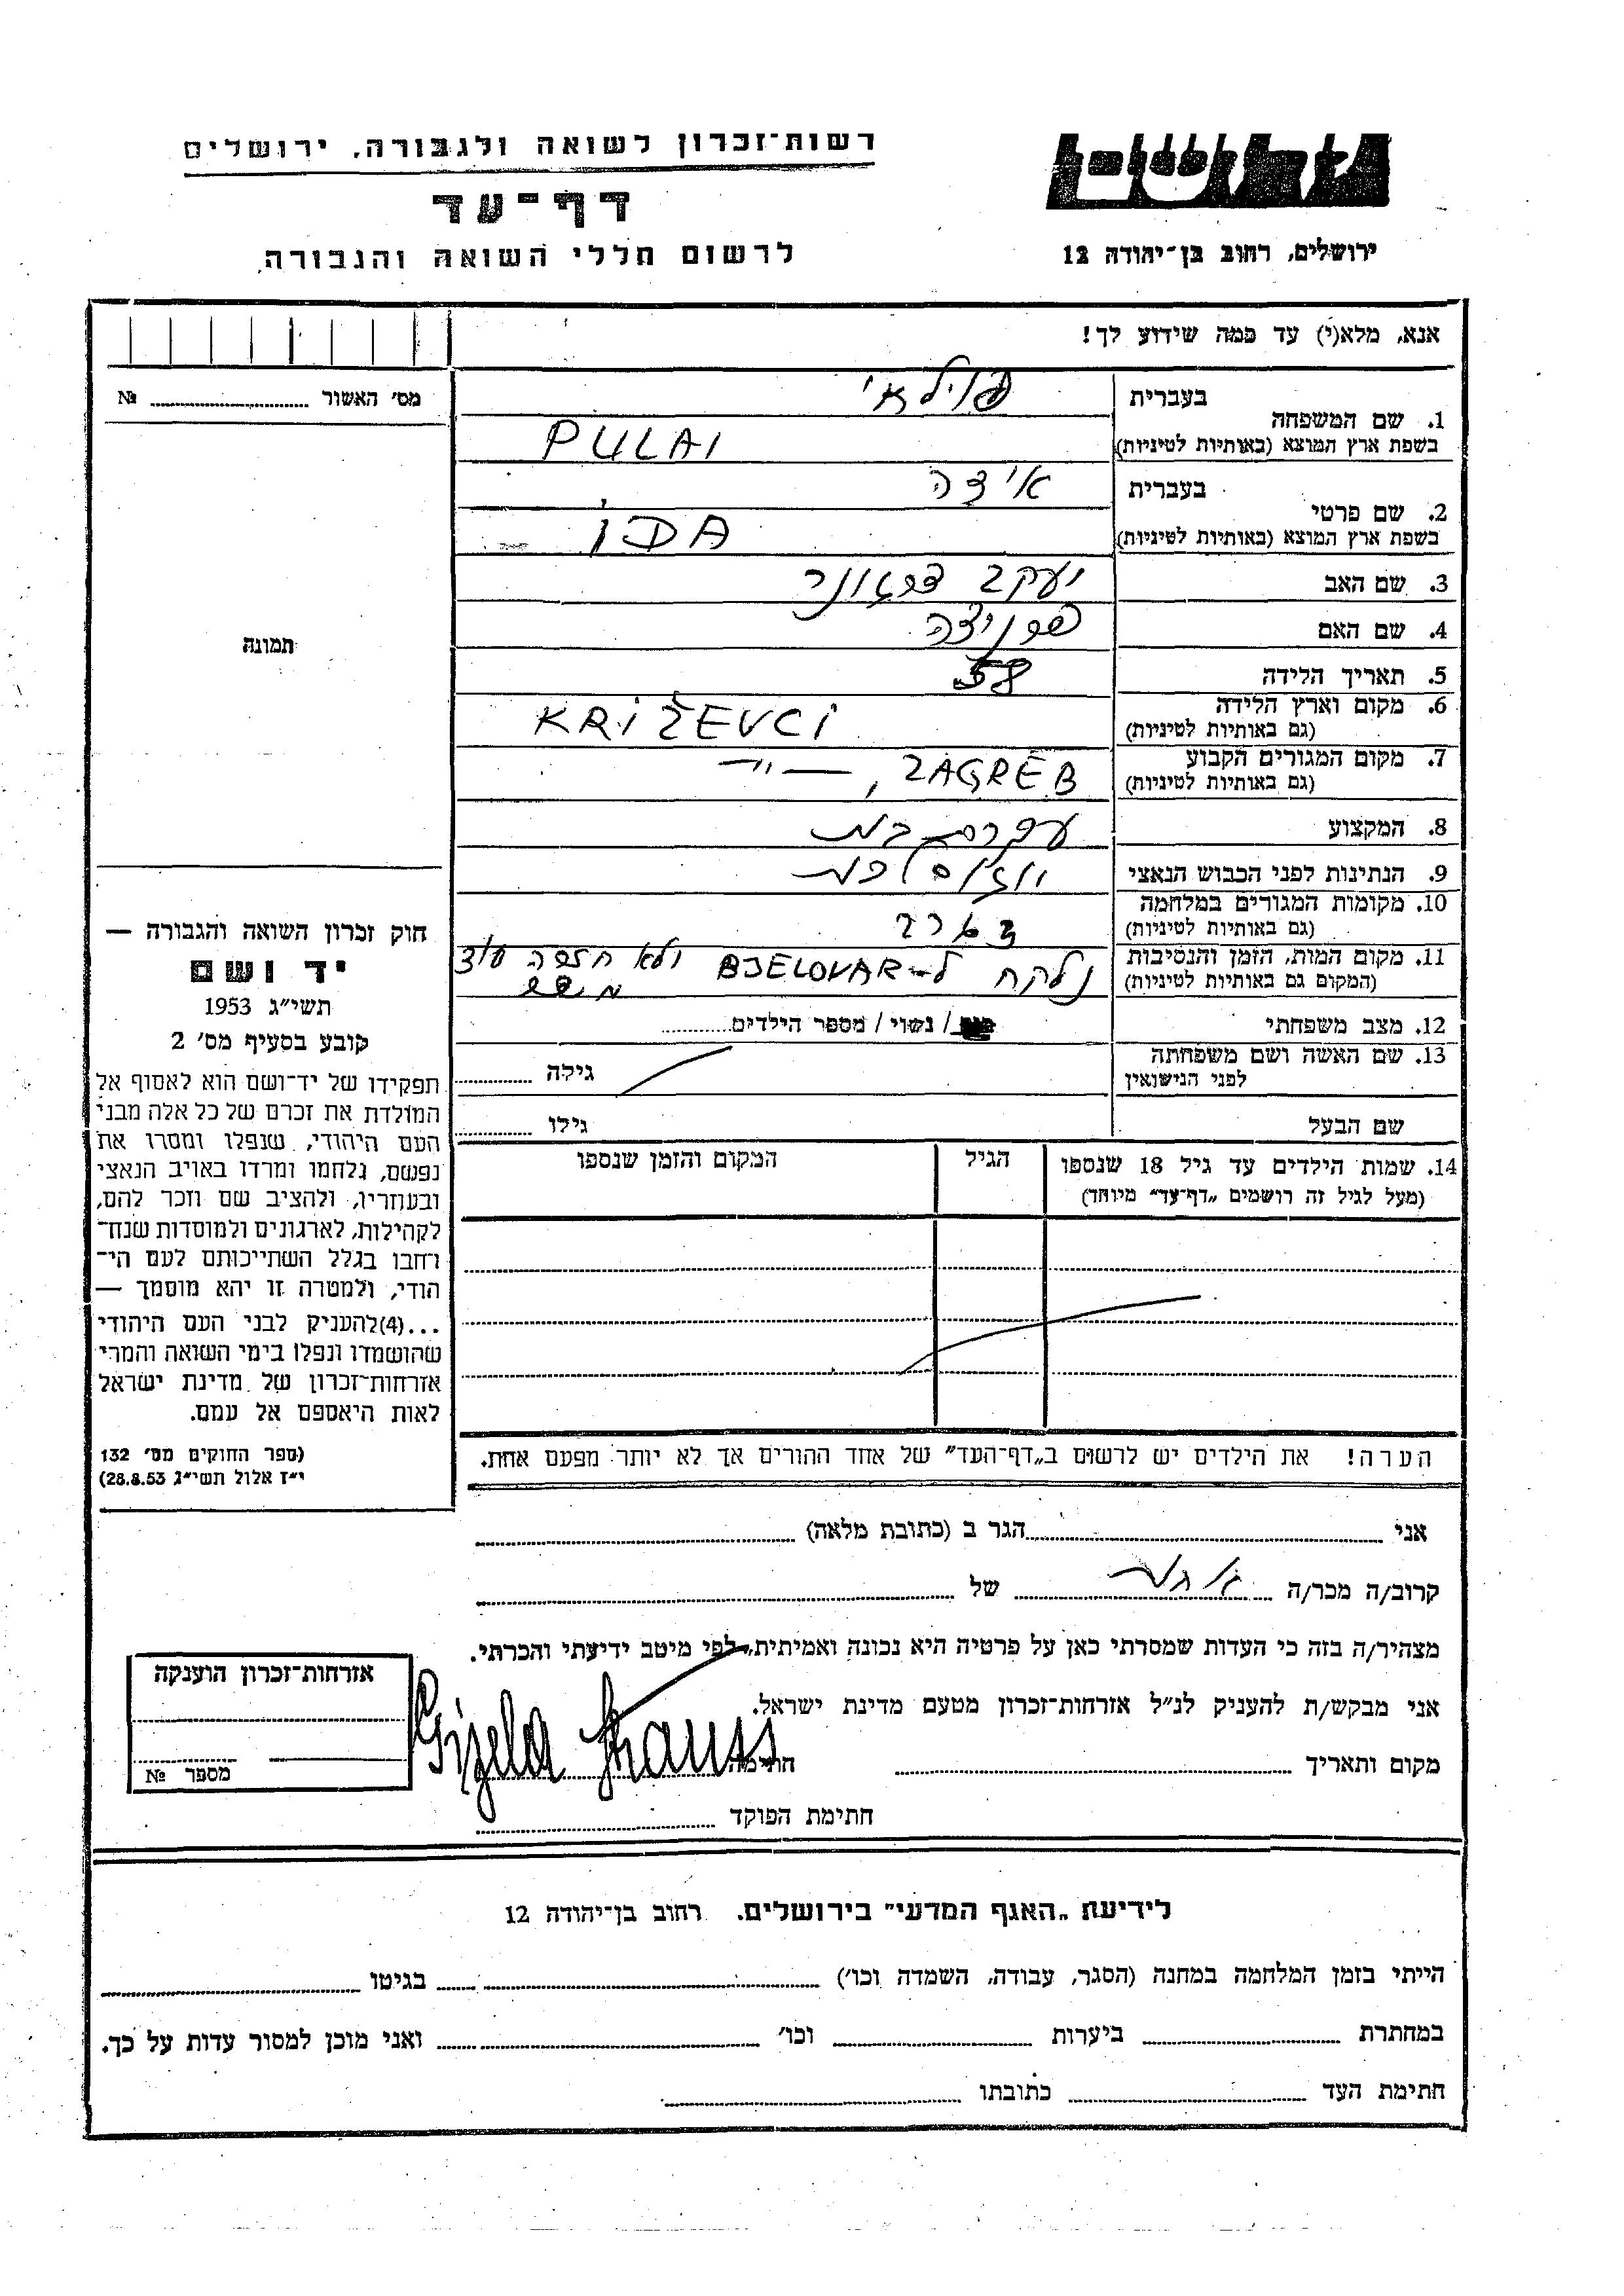 רשות־זכרון לשואה ולגבורה, ירושלים
דף־עד
לרשום חללי השואה והגבורה
ידושם
ירושלים, רחוב בן־יהודה 12
אנא, מלא(י) עד כמה שידוע לך!
מס' האשור № 
1. שם המשפחה
בעברית
פולאי
בשפת ארץ המוצא (באותיות לטיניות)
PULAI
2. שם פרטי
בעברית
אידה
בשפת ארץ המוצא (באותיות לטיניות)
IDA
3. שם האב
יעקב
4. שם האם
5. תאריך הלידה
58
6. מקום וארץ הלידה
(גם באותיות לטיניות)
KRIŽEVCI
7. מקום המגורים הקבוע
(גם באותיות לטיניות)
ZAGREB, —"—
8. המקצוע
עקרת בית
9. הנתינות לפני הכבוש הנאצי
יוגוסלבית
10. מקומות המגורים במלחמה
(גם באותיות לטיניות)
זגרב
11. מקום המות, הזמן והנסיבות
(המקום גם באותיות לטיניות)
נלקח ל-BJELOVAR ולא חזרה עוד
משם
12. מצב משפחתי
/ נשוי / מספר הילדים
13. שם האשה ושם משפחתה
לפני הנישואין
גילה
שם הבעל
גילו
14. שמות הילדים עד גיל 18 שנספו
(מעל לגיל זה רושמים „דף־עד" מיוחד)
הגיל
המקום והזמן שנספו
הערה! את הילדים יש לרשום ב„דף־העד" של אחד ההורים אך לא יותר מפעם אחת.
תמונה
חוק זכרון השואה והגבורה —
יד ושם
תשי"ג 1953
קובע בסעיף מס' 2
תפקידו של יד־ושם הוא לאסוף אל
המולדת את זכרם של כל אלה מבני
העם היהודי, שנפלו ומסרו את
נפשם, נלחמו ומרדו באויב הנאצי
ובעוזריו, ולהציב שם וזכר להם,
לקהילות, לארגונים ולמוסדות שנח־
רחבו בגלל השתייכותם לעם הי־
הודי, ולמטרה זו יהא מוסמך —
...(4)להעניק לבני העם היהודי
שהושמדו ונפלו בימי השואה והמרי
אזרחות־זכרון של מדינת ישראל
לאות היאספם אל עמם.
(ספר החוקים מס' 132
י"ז אלול תשי"ג 28.8.53)
אני הגר ב (כתובת מלאה)
קרוב/ה מכר/ה של
מצהיר/ה בזה כי העדות שמסרתי כאן על פרטיה היא נכונה ואמיתית, לפי מיטב ידיעתי והכרתי.
אני מבקש/ת להעניק לנ"ל אזרחות־זכרון מטעם מדינת ישראל.
מקום ותאריך חתימה
Gizela Strauss
חתימת הפוקד
אזרחות־זכרון הוענקה
מספר №
לידיעת „האגף המדעי" בירושלים. רחוב בן־יהודה 12
הייתי בזמן המלחמה במחנה (הסגר, עבודה, השמדה וכו') בגיטו
במחתרת ביערות וכו' ואני מוכן למסור עדות על כך.
חתימת העד כתובתו